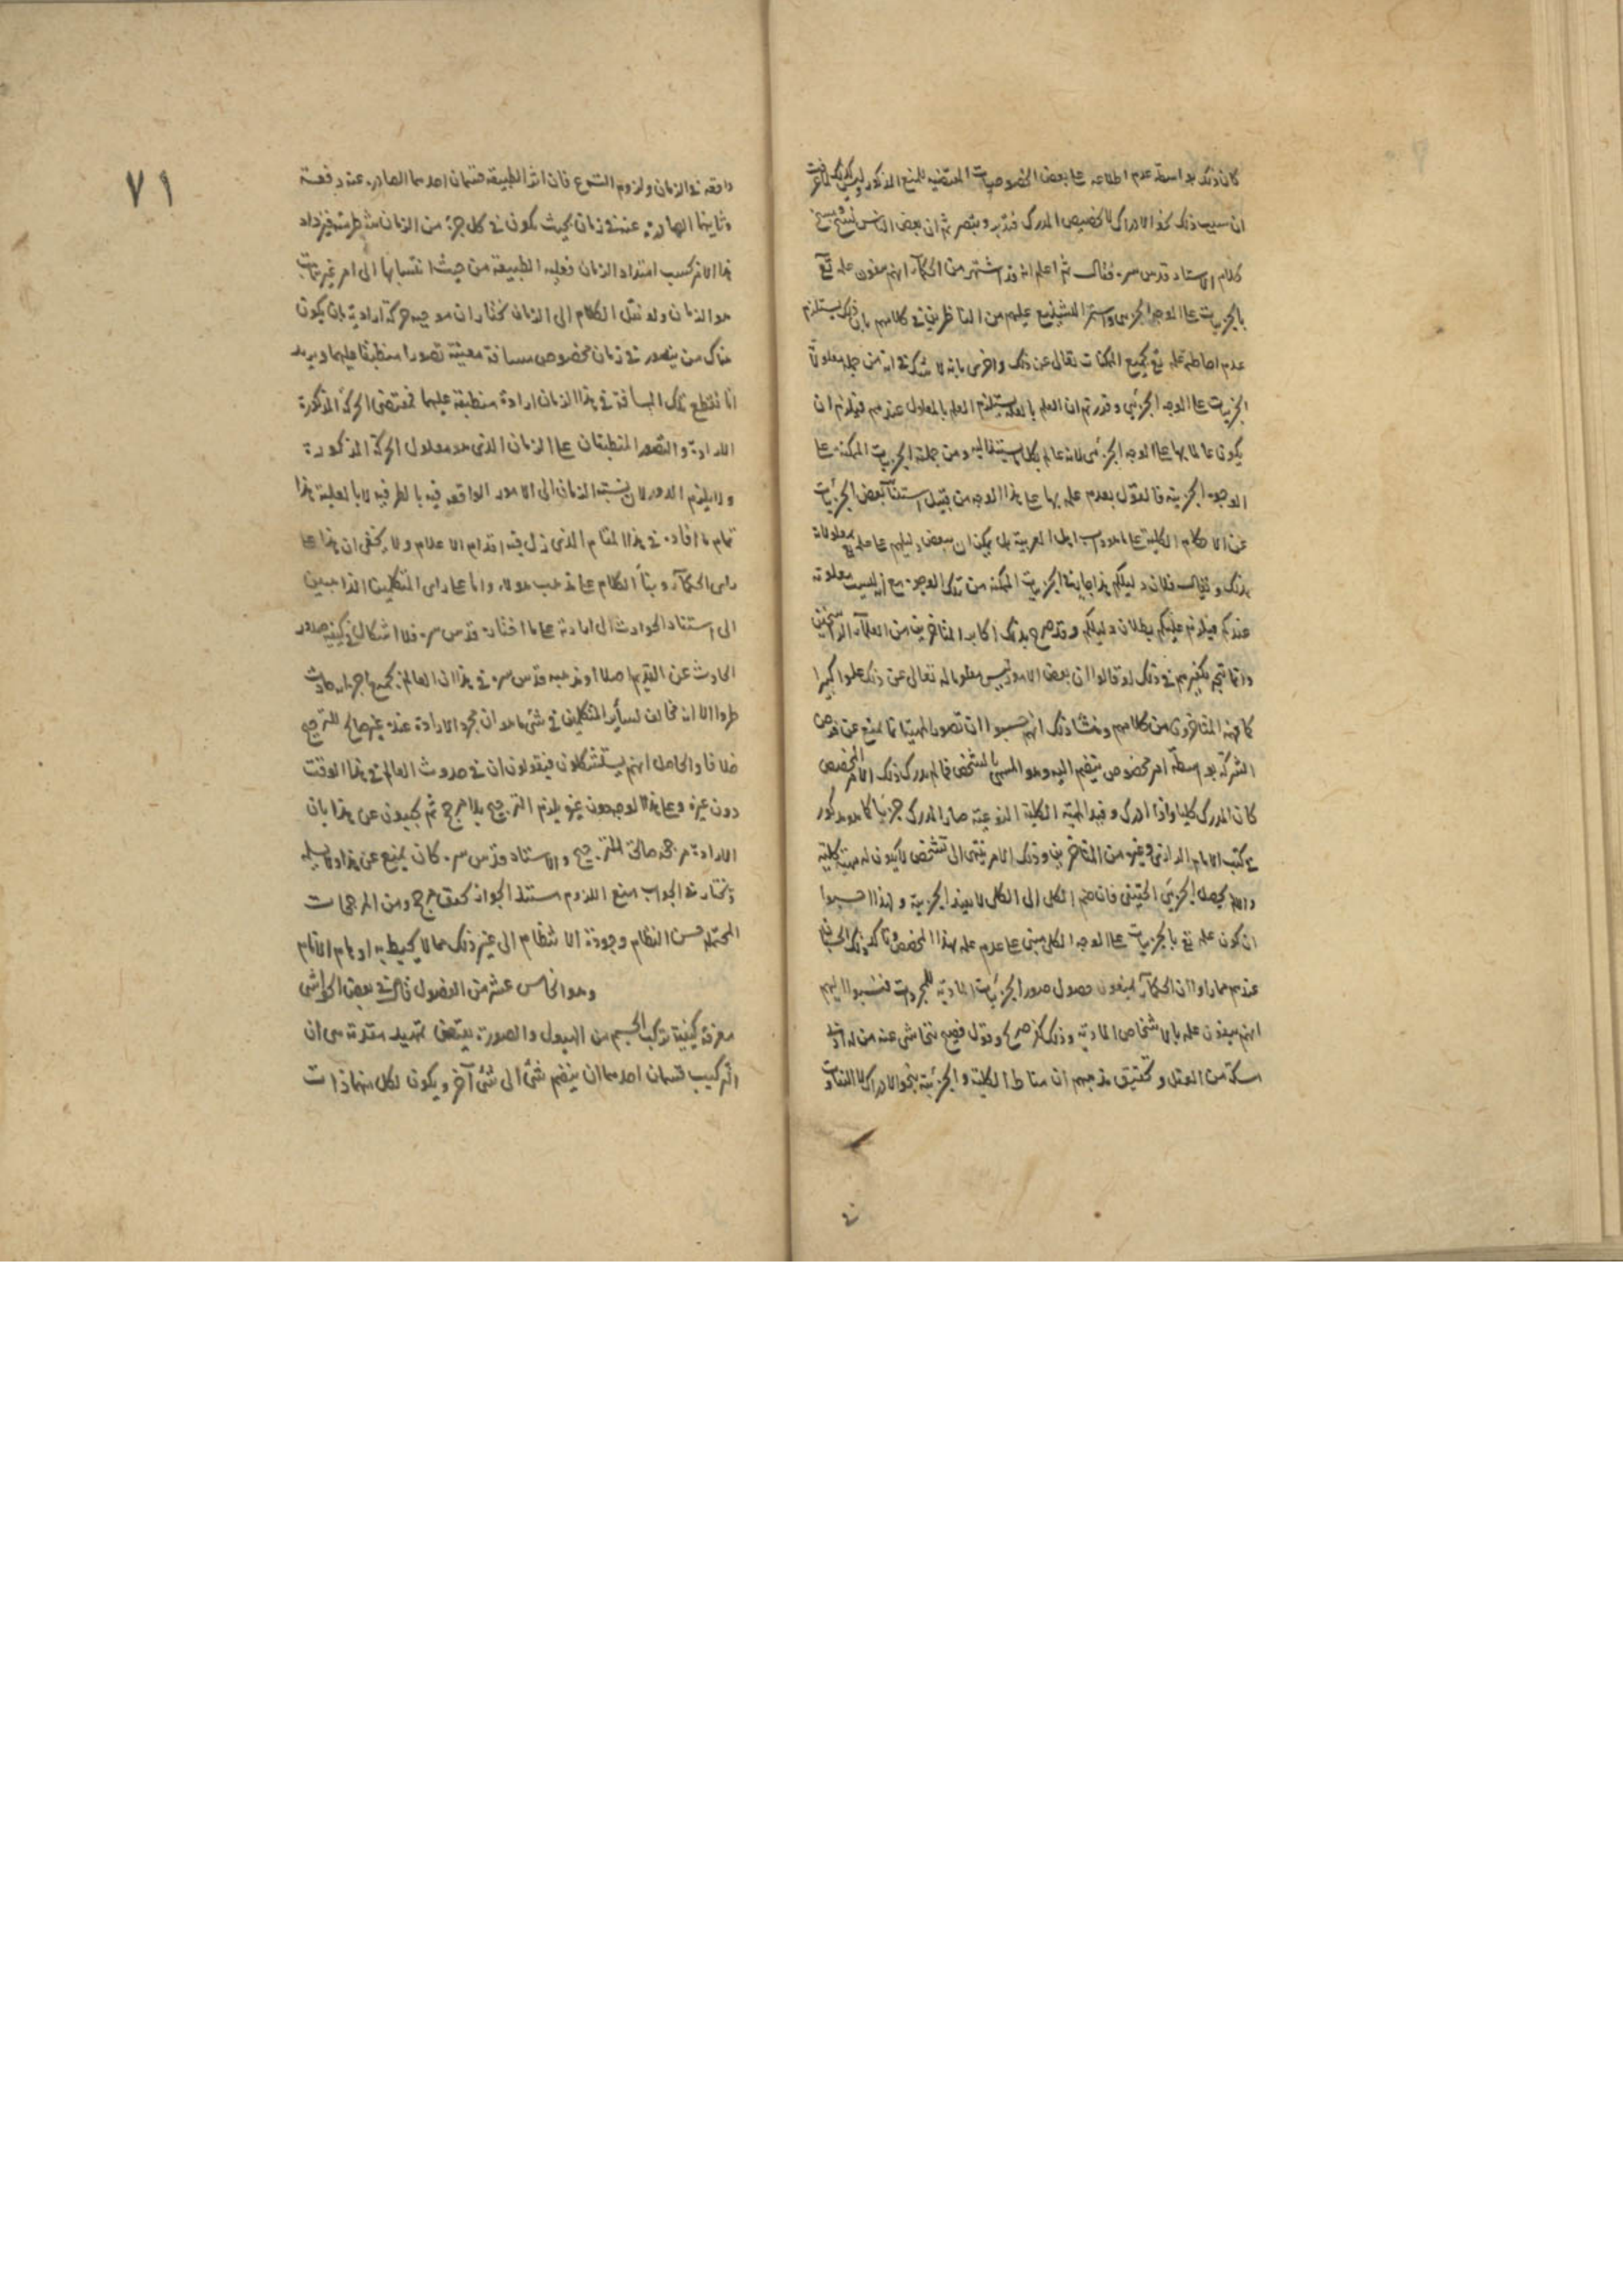 كان ذلك بواسطة عدم اطلاعه على بعض الخصوصيات المقتضية للمنع المذكور وليس كذلك لما عرفت
ان سبب ذلك نحو الادراك لا تخصيص المدرك فتدبر وتبصر ثم ان بعض الناس
كلام الاستاد قدس سره فقال ثم اعلم انه قد اشتهر من الحكماء انهم ينفون علمه تع
بالجزييات على الوجه الجزيى واستمر التشنيع عليهم من الناظرين فى كلامهم بان ذلك يستلزم
عدم احاطة علمه تع بجميع الممكنات تعالى عن ذلك واعترض بانه لا شك فى ان من جملة معلولاته
الجزييات على الوجه الجزيى وقدرتم ان العلم بالعلة يستلزم العلم بالمعلول عندهم فيلزم ان
يكون عالما بها على الوجه الجزئى لانه عالم بكل ما يستند اليه ومن جملة الجزييات الممكنة على
الوجوه الجزيية فالقول بعدم علمه بها على هذا الوجه من قبيل استثناء بعض الجزييات
عن الاحكام الكلية على ما هو داب اهل العربية بل يمكن ان ينقض دليلهم على علمه بمعلولاته
بذلك ويقال فلان دليلكم هذا جار فى الجزييات الممكنة من تلك الوجوه مع انها ليست معلومة
عندكم فيلزم عليكم بطلان دليلكم وقد صرح بذلك اكابر المتاخرين من العلماء الراسخين
وانما يتجه تكفيرهم فى ذلك لو قالوا ان بعض الامور ليس معلوما له تعالى عن ذلك علوا كبيرا
كما فهمه المتاخرون من كلامهم ومنشأ ذلك انهم حسبوا ان تصور الماهية انما يمنع عن فرض
الشركة بواسطة امر مخصوص ينضم اليه وهو المسمى بالتشخص فما لم يدرك ذلك الامر المخصص
كان المدرك كليا واذا ادرك وقيد الماهية الكلية النوعية صار المدرك جزئيا كما هو مذكور
فى كتب الامام الرازى وغيره من المتاخرين وذلك الامر ينتهى الى تشخص لا يكون له مهية كلية
والا لم يحصل الجزئى الحقيقى فان ضم الكلى الى الكلى لا يفيد الجزيية ولهذا حسبوا
ان كون علمه تع بالجزييات على الوجه الكلى مبنى على عدم علمه بهذا المخصص وتاكد ذلك الحسبان
عندهم مما راوا ان الحكماء ينفون حصول صور الجزئيات المادية للمجردات فنسبوا اليهم
انهم ينفون علمه بالاشخاص المادية وذلك كفر صريح وقول فضيح يتحاشى عنه من له ادنى
مسكة من العقل وتحقيق مذهبهم ان مناط الكلية والجزئية نحو الادراك لا التفاوت
٧١
واقعة فى الزمان ولزوم التنوع فان اثر الطبيعة قسمان احدهما الصادر عنه دفعة
وثانيهما الصادر عنه فى زمان بحيث يكون فى كل جزء من الزمان شطر منه فيزداد
هذا الاثر بحسب امتداد الزمان فعلية الطبيعة من حيث انتسابها الى امر غير ثابت
هو الزمان ولو نقل الكلام الى الزمان نختار ان موجبه حركة ارادية بان يكون
هناك من يتصور فى زمان مخصوص مسافة معينة تصورا منطبقا عليهما ويريد
ان يقطع تلك المسافة فى هذا الزمان ارادة منطبقة عليهما فمقتضى الحركة المذكورة
الارادة والتصور المنطبقان على الزمان الذى هو معلول الحركة المذكورة
ولا يلزم الدور لان نسبة الزمان الى الامور الواقعة فيه بالظرفية لا بالعلية هذا
تمام ما افاده فى هذا المقام الذى زل فيه اقدام الاعلام ولا يخفى ان هذا على
راى الحكماء وبناء الكلام على مذهب هولاء واما على راى المتكلمين الذاهبين
الى استناد الحوادث الى ارادته على ما اختاره قدس سره فلا اشكال فى كيفية صدور
الحادث عن القديم اصلا اذ مذهبه قدس سره فى هذا ان العالم بجميع اجزائه حادث
طرا الا انه مخالف لساير المتكلمين فى شى ما هو ان مجرد الارادة عنده غير صالح للترجيح
خلافا والحاصل انهم يستشكلون فيقولون ان فى حدوث العالم فى هذا الوقت
دون غيره وعلى هذا الوجه دون غيره يلزم الترجيح بلا مرجح ثم يجيبون عن هذا بان
الارادة مرجحة صالحة للترجيح والاستاد قدس سره كان يمنع عن هذا ولا يسلمه
ويختار فى الجواب منع اللزوم مستندا لجواز تحقق مرجح ومن المرجحات
المحتملة حسن النظام وجودة الانتظام الى غير ذلك مما لا يحيط به اوهام الانام
وهو الخامس عشر من الفصول قال فى بعض الحواشى
معرفة كيفية تركب الجسم من الهيولى والصورة يقتضى تمهيد مقدمة هى ان
التركيب قسمان احدهما ان ينضم شئ الى شئ آخر ويكون لكل منهما ذات